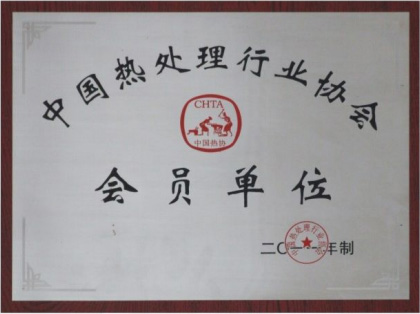 中国热处理行业协会
CHTA
中国热协
会员单位
二〇一一年制
中国热处理行业协会